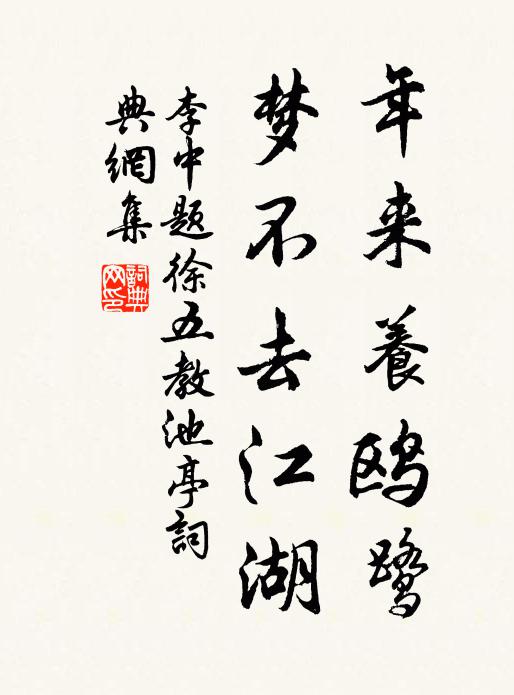 年来養鸥鹭
梦不去江湖
李中题徐五教池亭詞
典網集
詞典网印